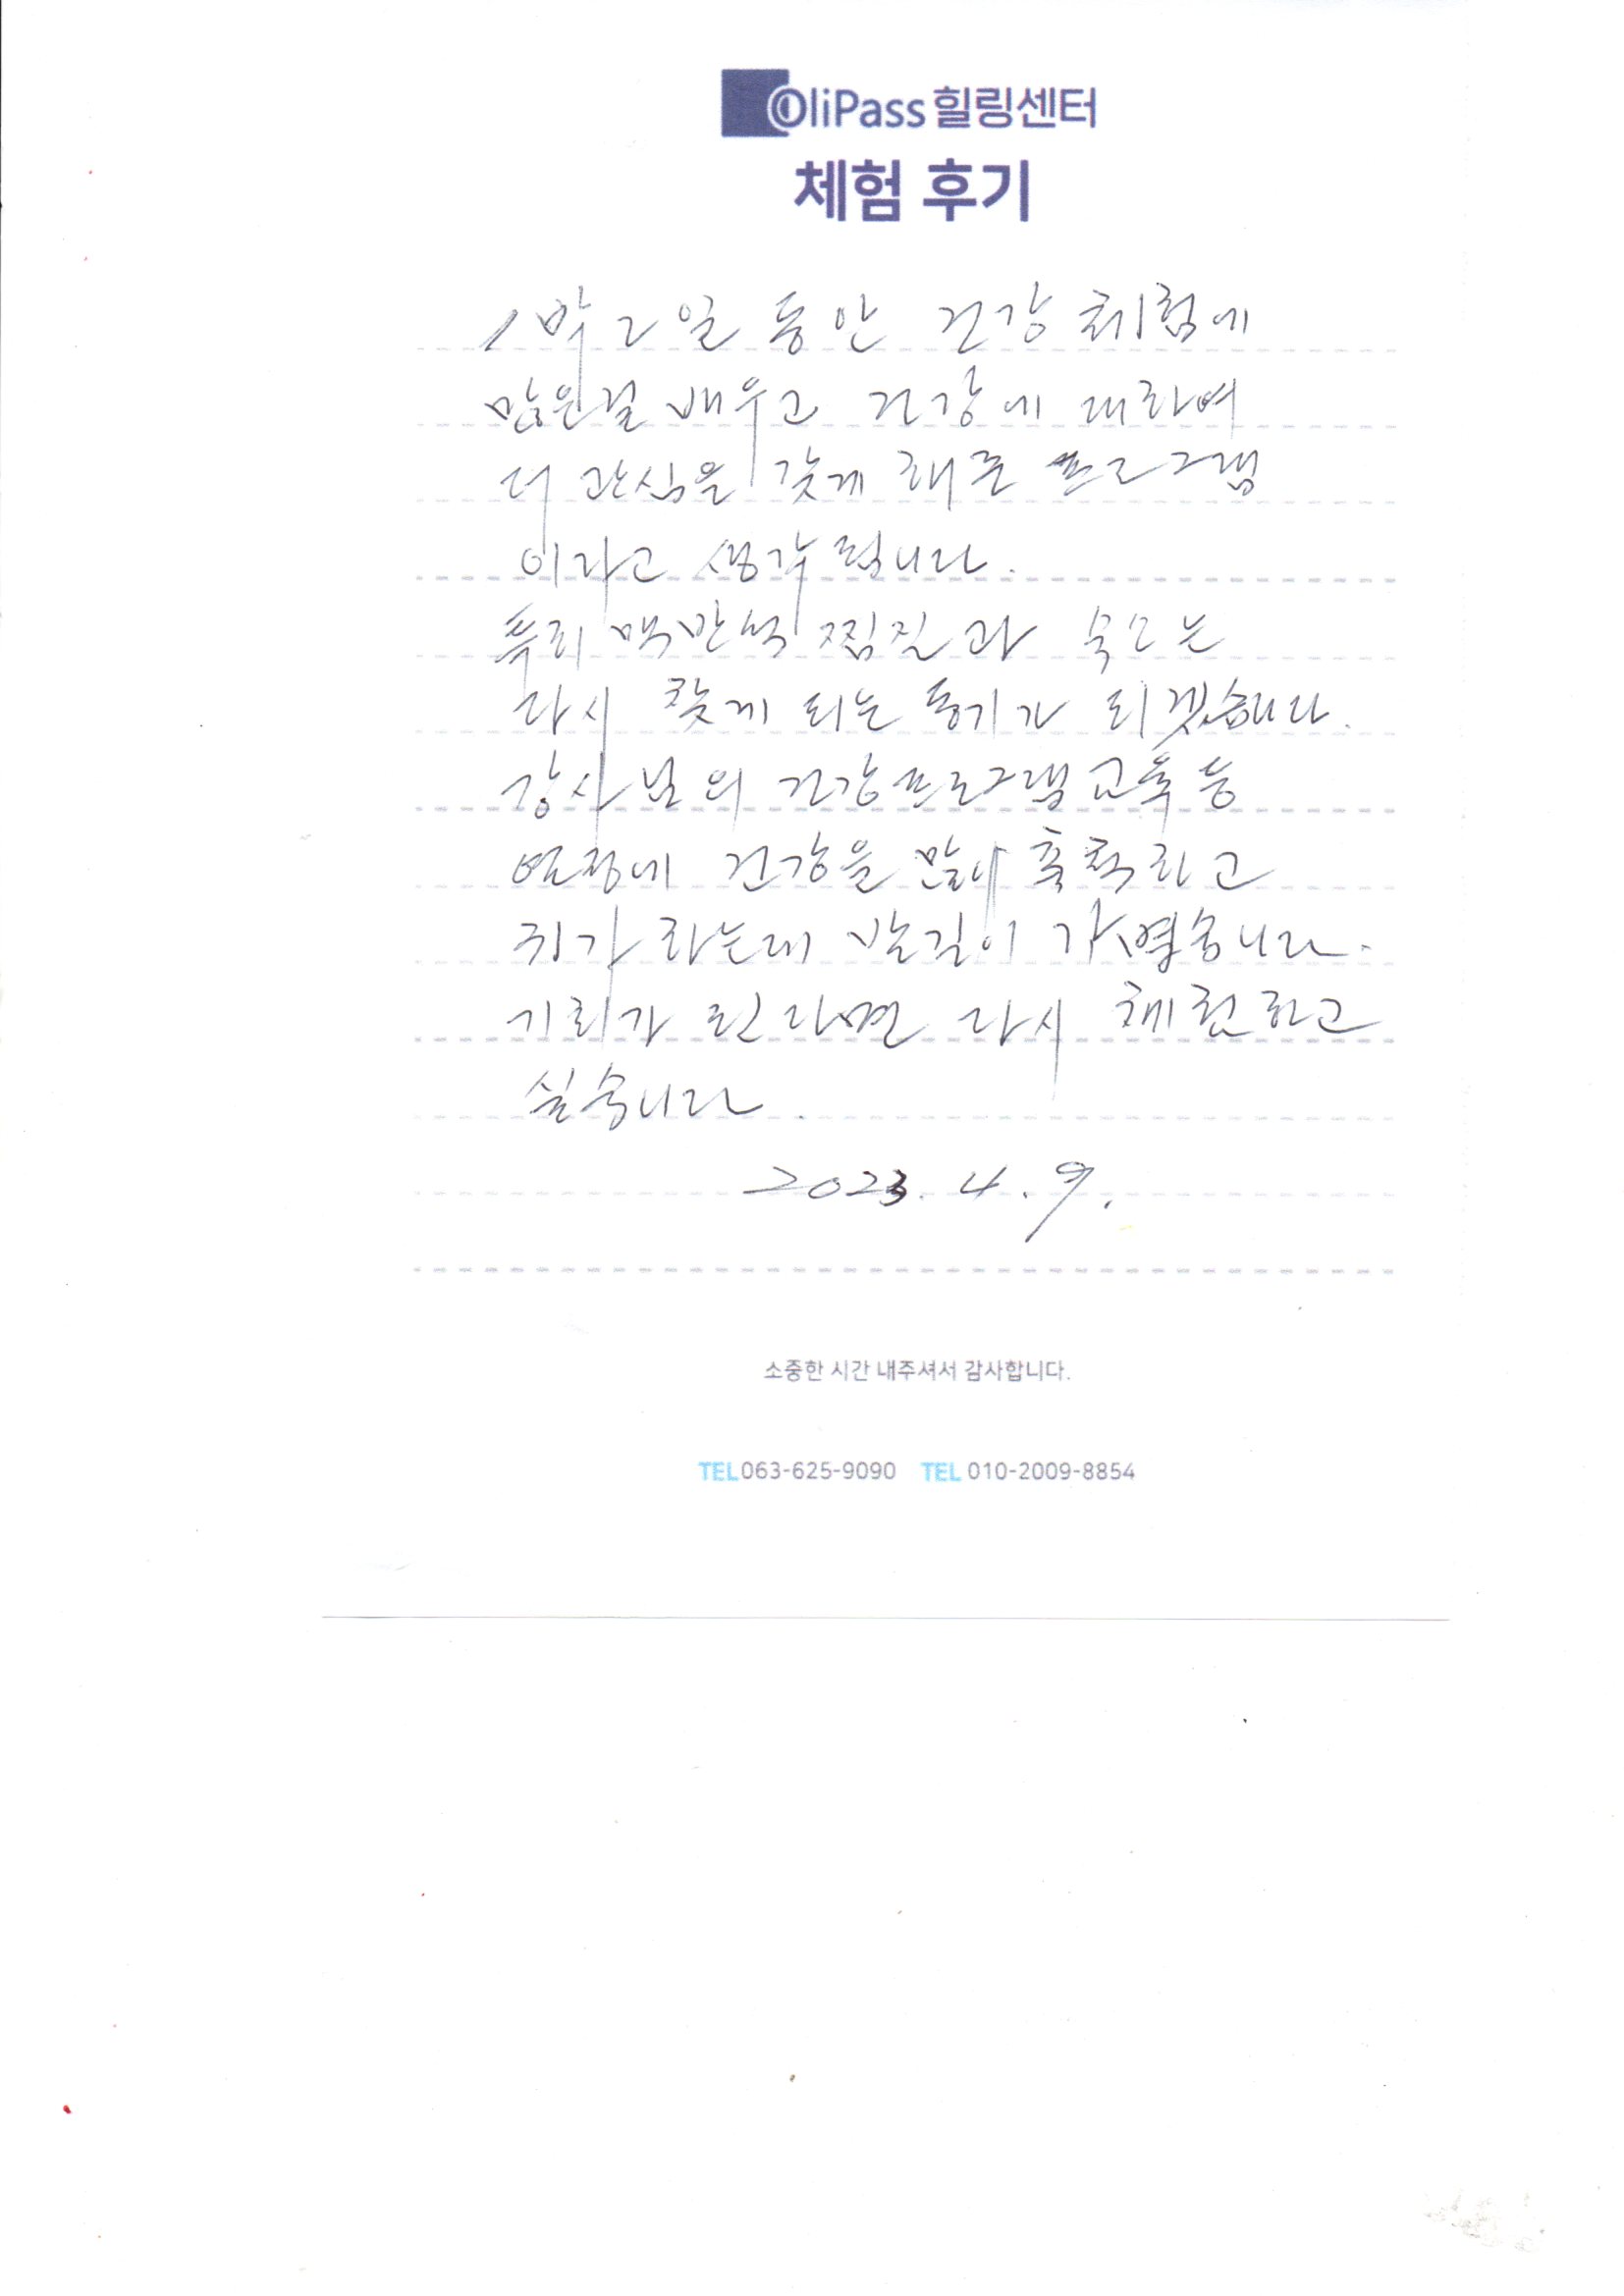 OliPass 힐링센터
체험 후기
1박2일 동안 건강 체험에
많은걸 배우고 건강에 대하여
더 관심을 갖게 해준 프로그램
이라고 생각 됩니다.
특히 맥반석 찜질과
다시 찾게 되는 동기가 되겠습니다.
강사님의 건강프로그램 교육등
건강을 많이 축척하고
귀가 하는데 발길이 가볍습니다.
기회가 된다면 다시 체험하고
싶습니다.
2023. 4. 9.
소중한 시간 내주셔서 감사합니다.
TEL 063-625-9090 TEL 010-2009-8854